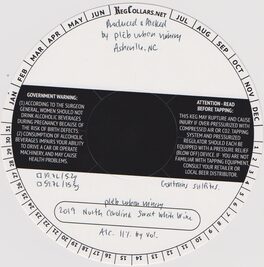 JAN FEB MAR APR MAY JUN JUL AUG SEP OCT NOV DEC
KEGCOLLARS.NET
Produced & Kegged
by pleb urban winery
Asheville, NC
GOVERNMENT WARNING:
(1) ACCORDING TO THE SURGEON
GENERAL, WOMEN SHOULD NOT
DRINK ALCOHOLIC BEVERAGES
DURING PREGNANCY BECAUSE OF
THE RISK OF BIRTH DEFECTS.
(2) CONSUMPTION OF ALCOHOLIC
BEVERAGES IMPAIRS YOUR ABILITY
TO DRIVE A CAR OR OPERATE
MACHINERY, AND MAY CAUSE
HEALTH PROBLEMS.
ATTENTION - READ
BEFORE TAPPING:
THIS KEG MAY RUPTURE AND CAUSE
INJURY IF OVER PRESSURIZED WITH
COMPRESSED AIR OR CO2. TAPPING
SYSTEM AND PRESSURIZED
REGULATOR SHOULD EACH BE
EQUIPPED WITH A PRESSURE RELIEF
(BLOW OFF) DEVICE. IF YOU ARE NOT
FAMILIAR WITH TAPPING EQUIPMENT,
CONSULT YOUR RETAILER OR
LOCAL BEER DISTRIBUTOR.
Contains sulfites.
pleb urban winery
2019 North Carolina Sweet White Wine
Alc. 11% by Vol.